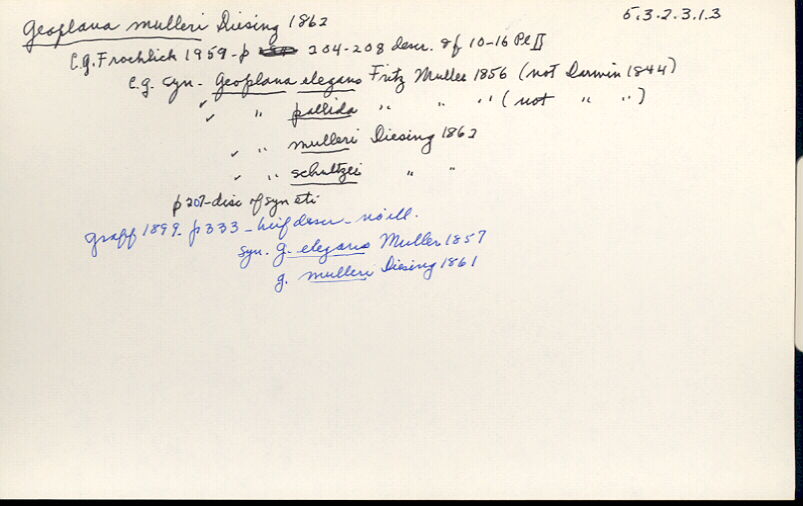 Geoplana mulleri Diesing 1862 5.3.2.3.1.3
C.G. Froehlich 1959 - p 204-208 descr. & f 10-16 Pl II
C.g. syn - Geoplana elegans Fritz Muller 1856 (not Darwin 1844)
✓ " pallida " " " (not " ")
✓ " mulleri Diesing 1862
✓ " schultzei " "
p 207 - disc of syn etc
Graff 1899 - p 333 - brief descr - no ill.
syn. G. elegans Muller 1857
G. mulleri Diesing 1861